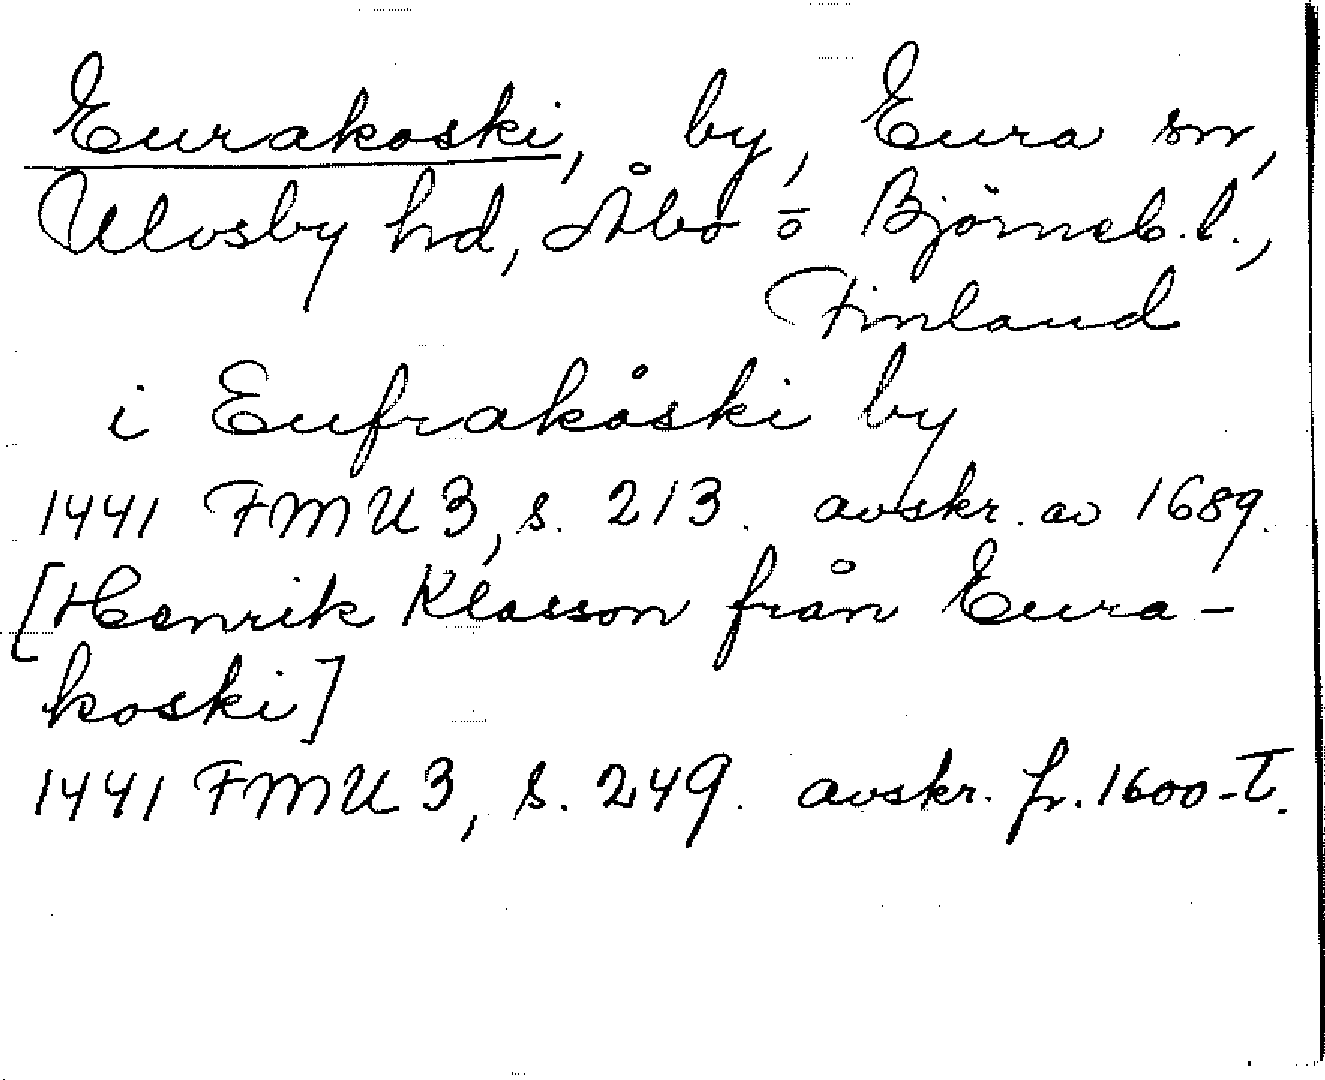 Eurakoski, by, Eura sn,
Ulvsby hd, Åbo o Björneb. l.,
Finland
i Eufrakåski by
1441 FMU 3, s. 213. avskr. av 1689.
[Henrik Klasson från Eura-
koski]
1441 FMU 3, s. 249. avskr. fr. 1600-t.